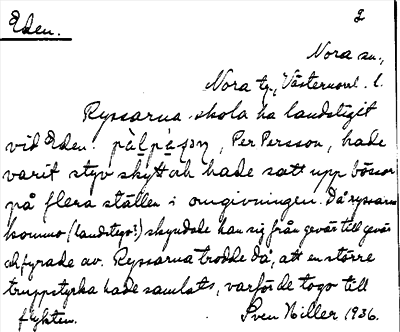 Eden. 2
Nora sn.,
Nora tg., Västernorrl. l.
Ryssarna skola ha landstigit
vid Eden. pàlpá̱son, Per Persson, hade
varit styv skytt och hade satt upp bössor
på flera ställen i omgivningen. Då ryssarna
kommo (landstego?) skyndade han sig från gevär till gevär
och fyrade av. Ryssarna trodde då, att en större
truppstyrka hade samlats, varför de togo till
flykten. Sven Hiller 1936.